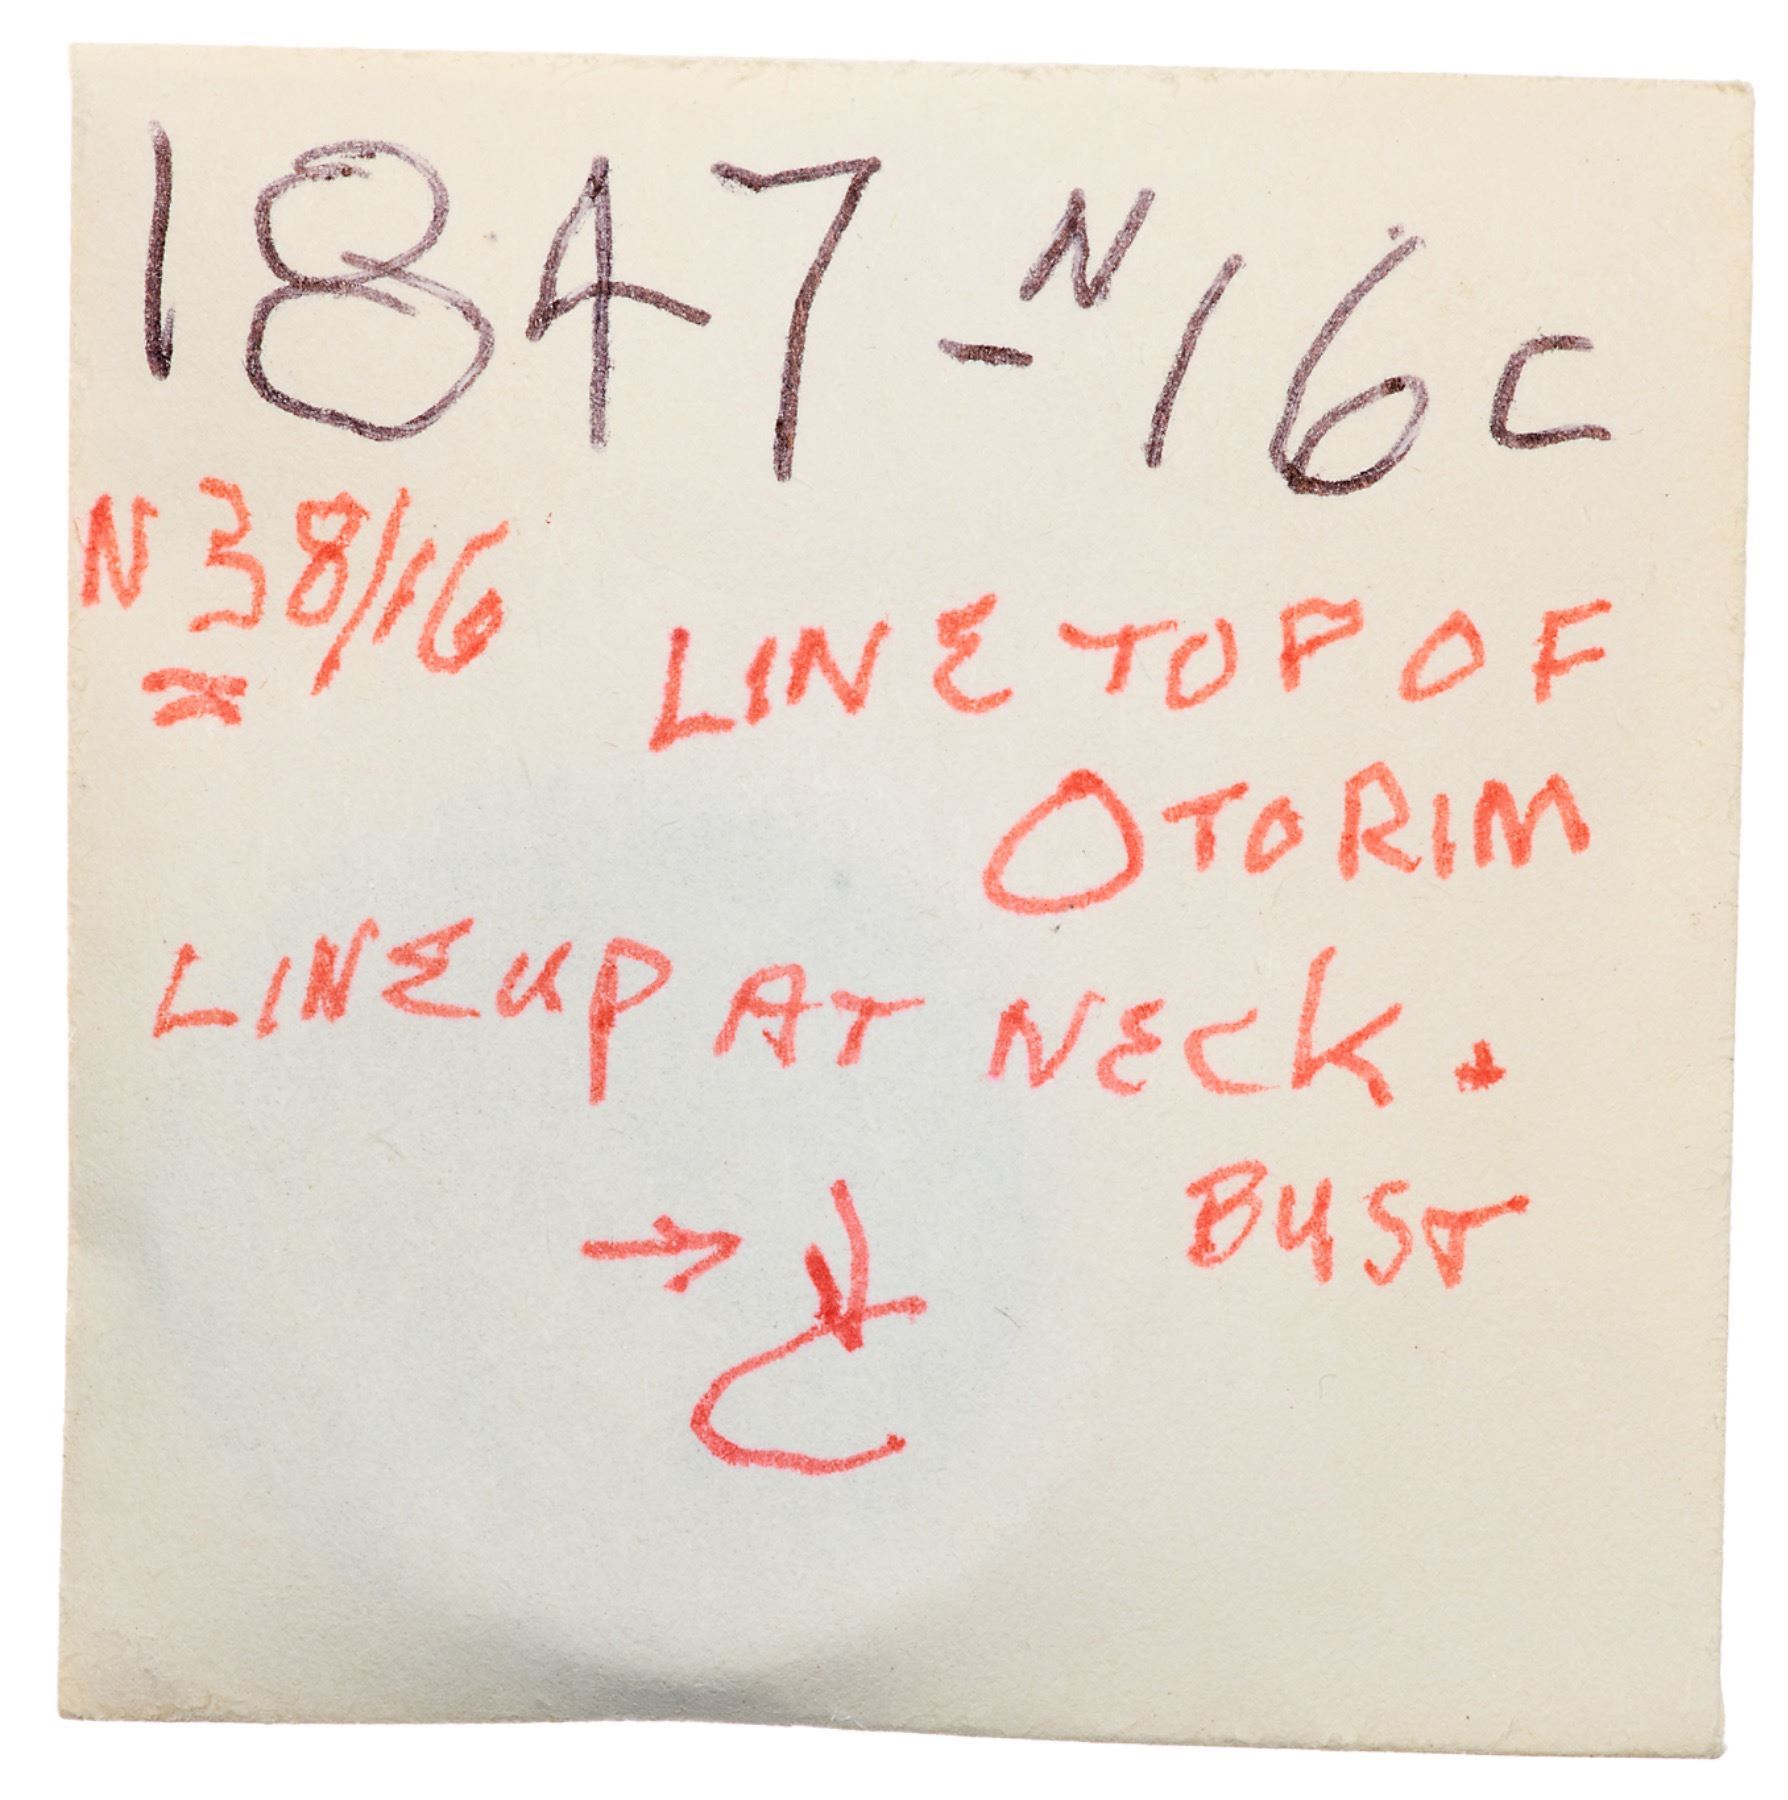 1847-N16c
N38/16
LINE TOP OF
O TO RIM
LINE UP AT NECK.
BUST
→